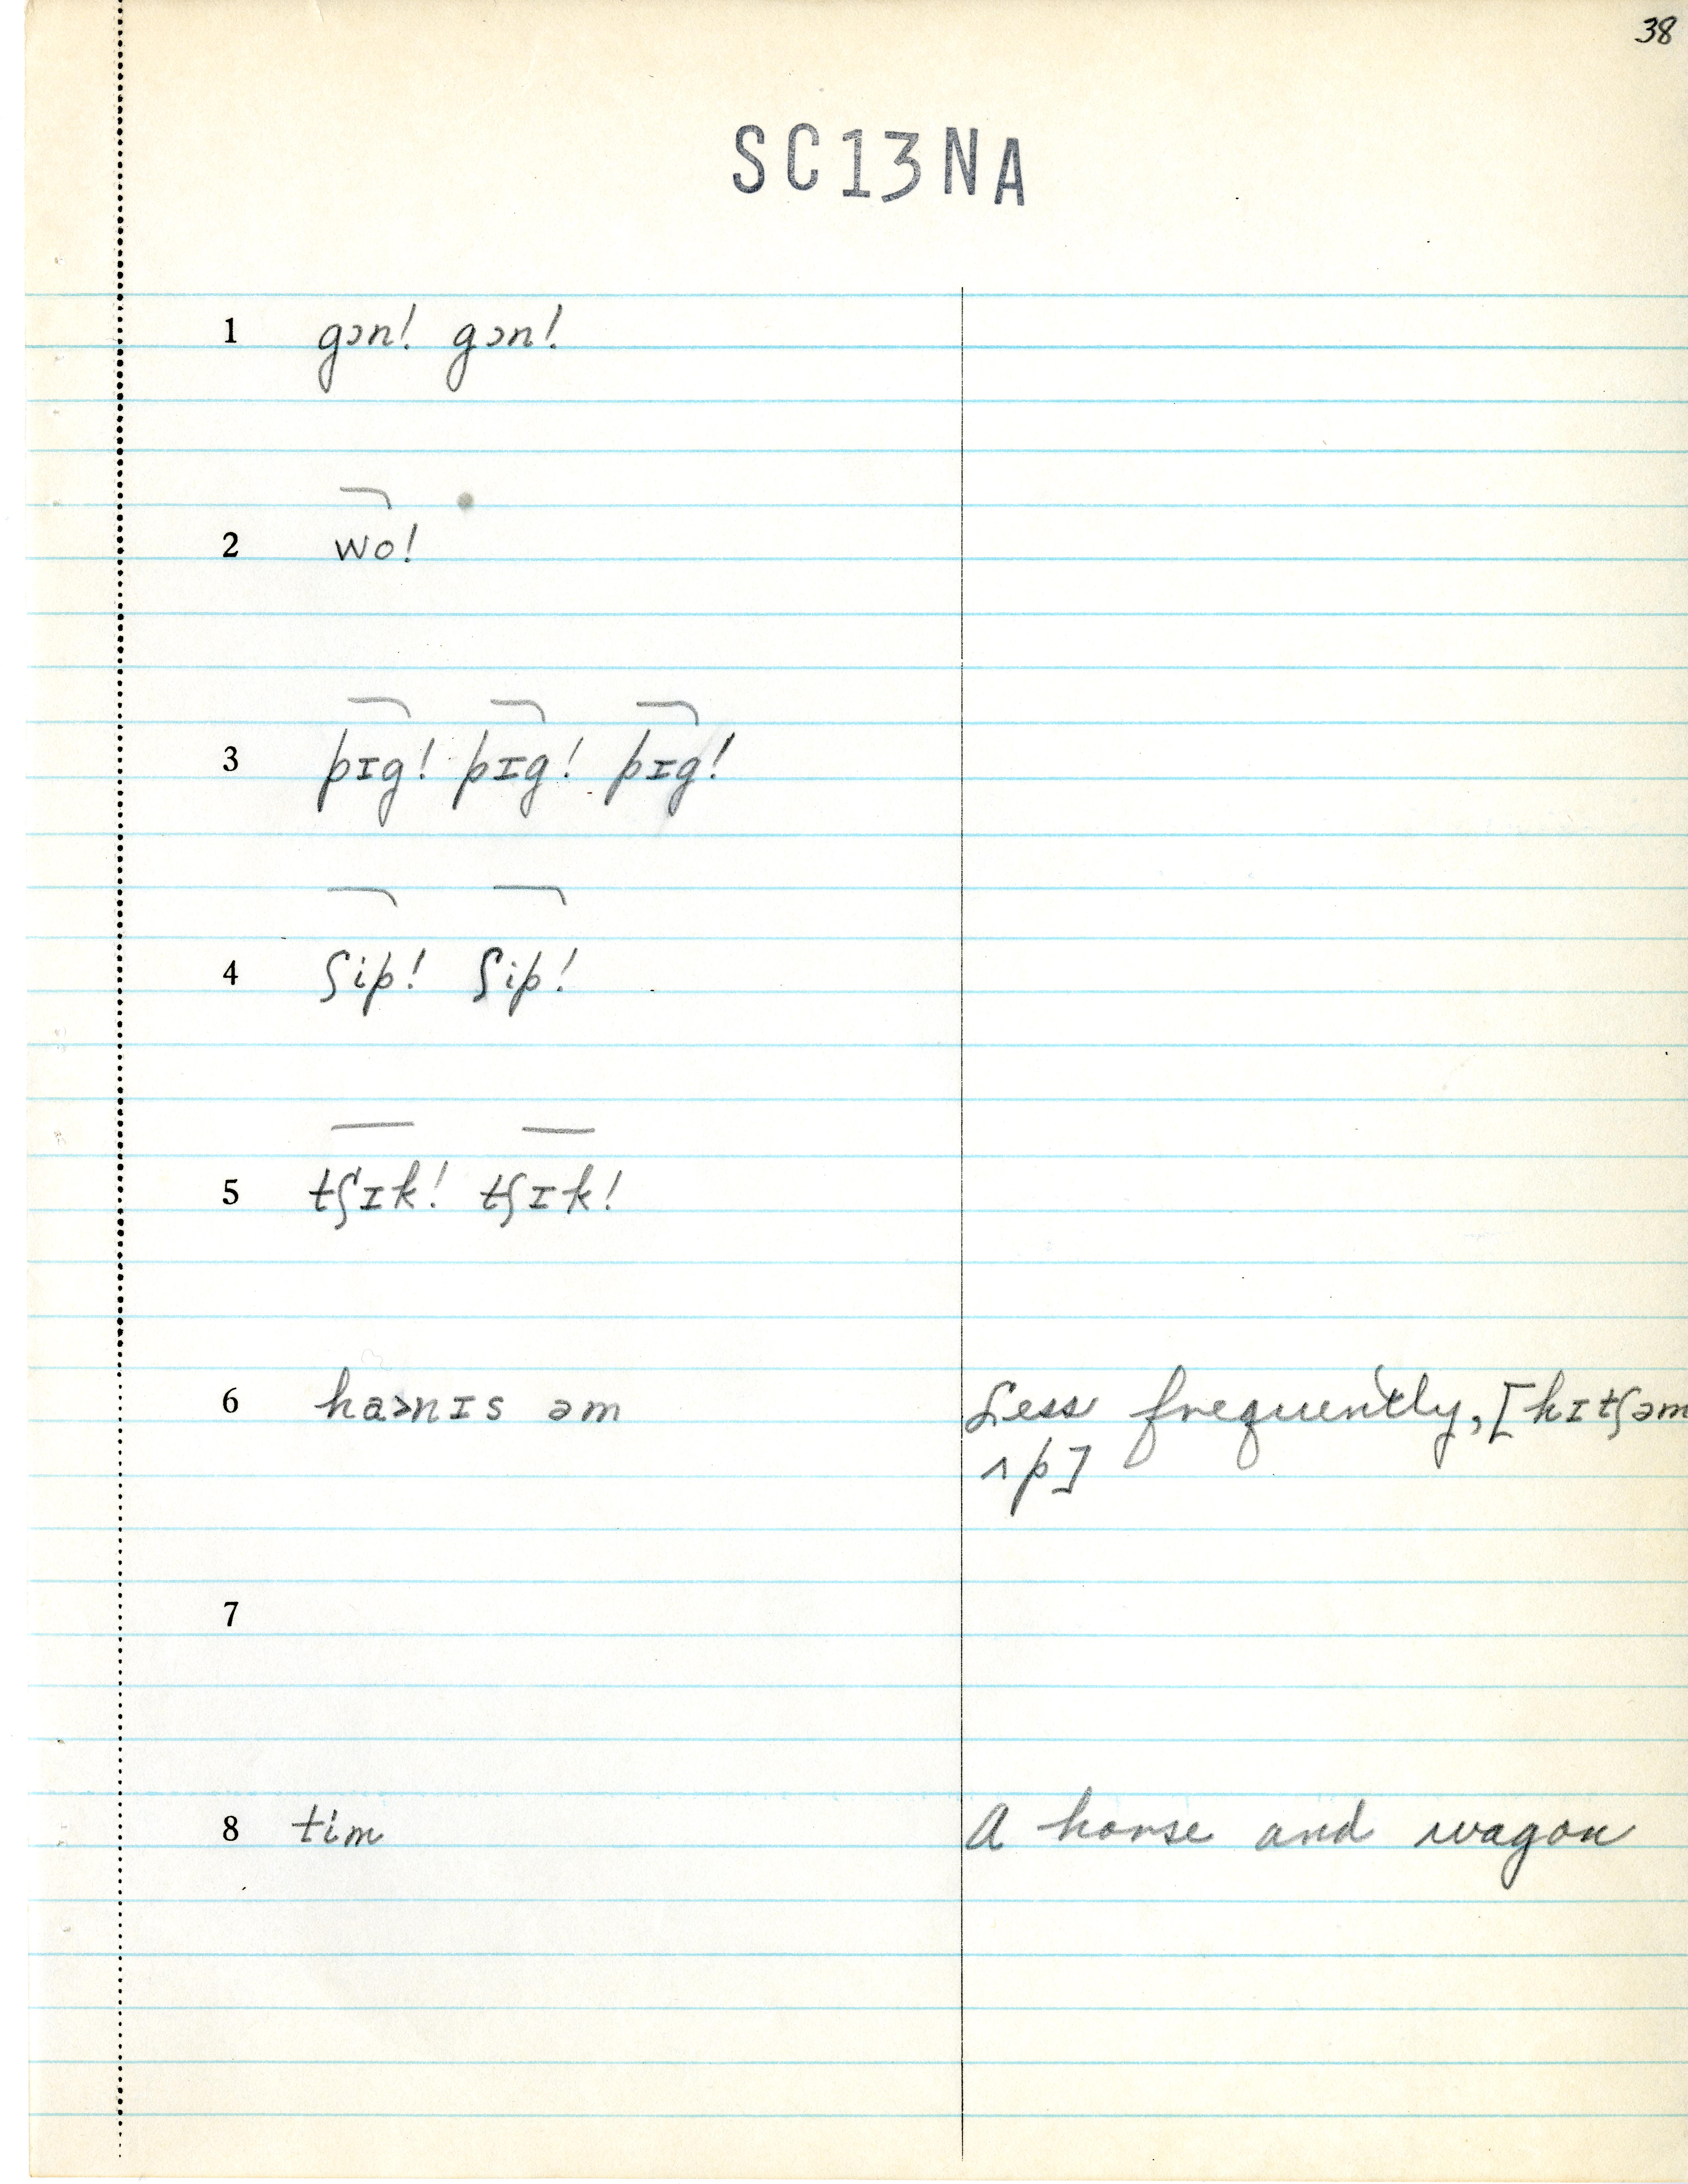 38
SC13NA
1 gɔn! gɔn!
2 wo!
3 pɪg! pɪg! pɪg!
4 ʃip! ʃip!
5 tʃɪk! tʃɪk!
6 ha>nɪs əm Less frequently, [hɪtʃəm
ʌp]
7
8 tim A horse and wagon